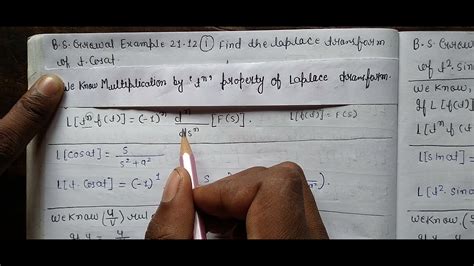 B.S. Grewal Example 21.12 (i) Find the laplace transform
of t. cosat.
We Know Multiplication by 'tⁿ' property of Laplace transform.
L[tⁿ f(t)] = (-1)ⁿ dⁿ/dsⁿ [F(s)]. L[f(t)] = F(s)
L[cosat] = s/(s²+a²)
L[t. cosat] = (-1)¹ s
We Know (u/v) rul
B.S. Gre
of t².
We Know,
If L[f(
L[sinat]
L[t². sin
We Know (